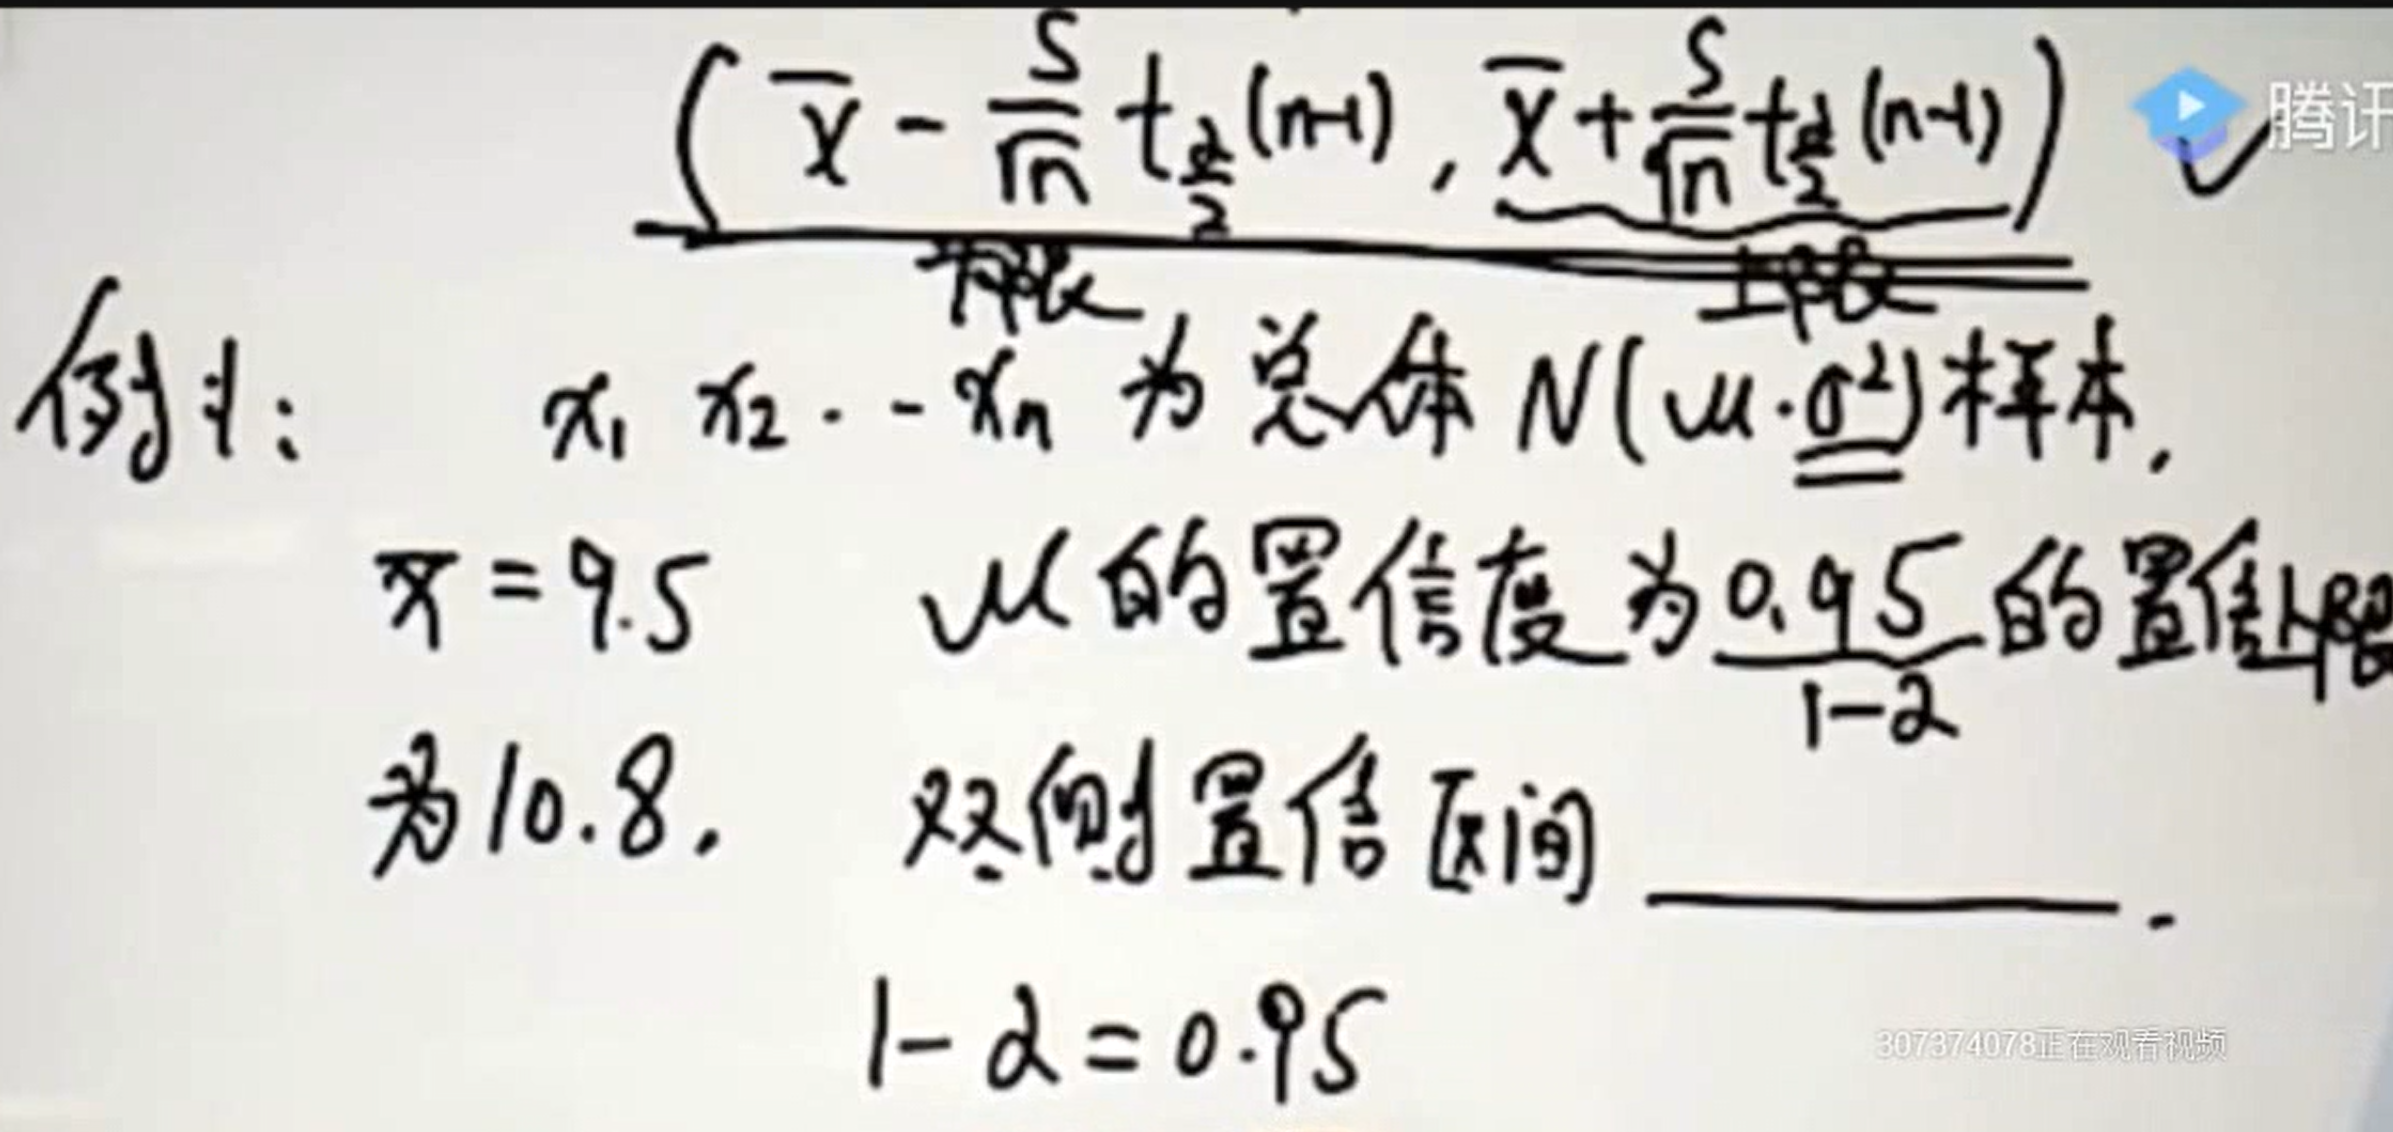 (x̄ - S/√n t_{α/2}(n-1), x̄ + S/√n t_{α/2}(n-1))
腾讯
下限 上限
例1: x₁ x₂ ·-- xₙ 为总体 N(μ·σ²)样本,
x̄ = 9.5 μ的置信度为0.95的置信上限
1-α
为10.8, 双侧置信区间 ______.
1-α=0.95
307374078正在观看视频